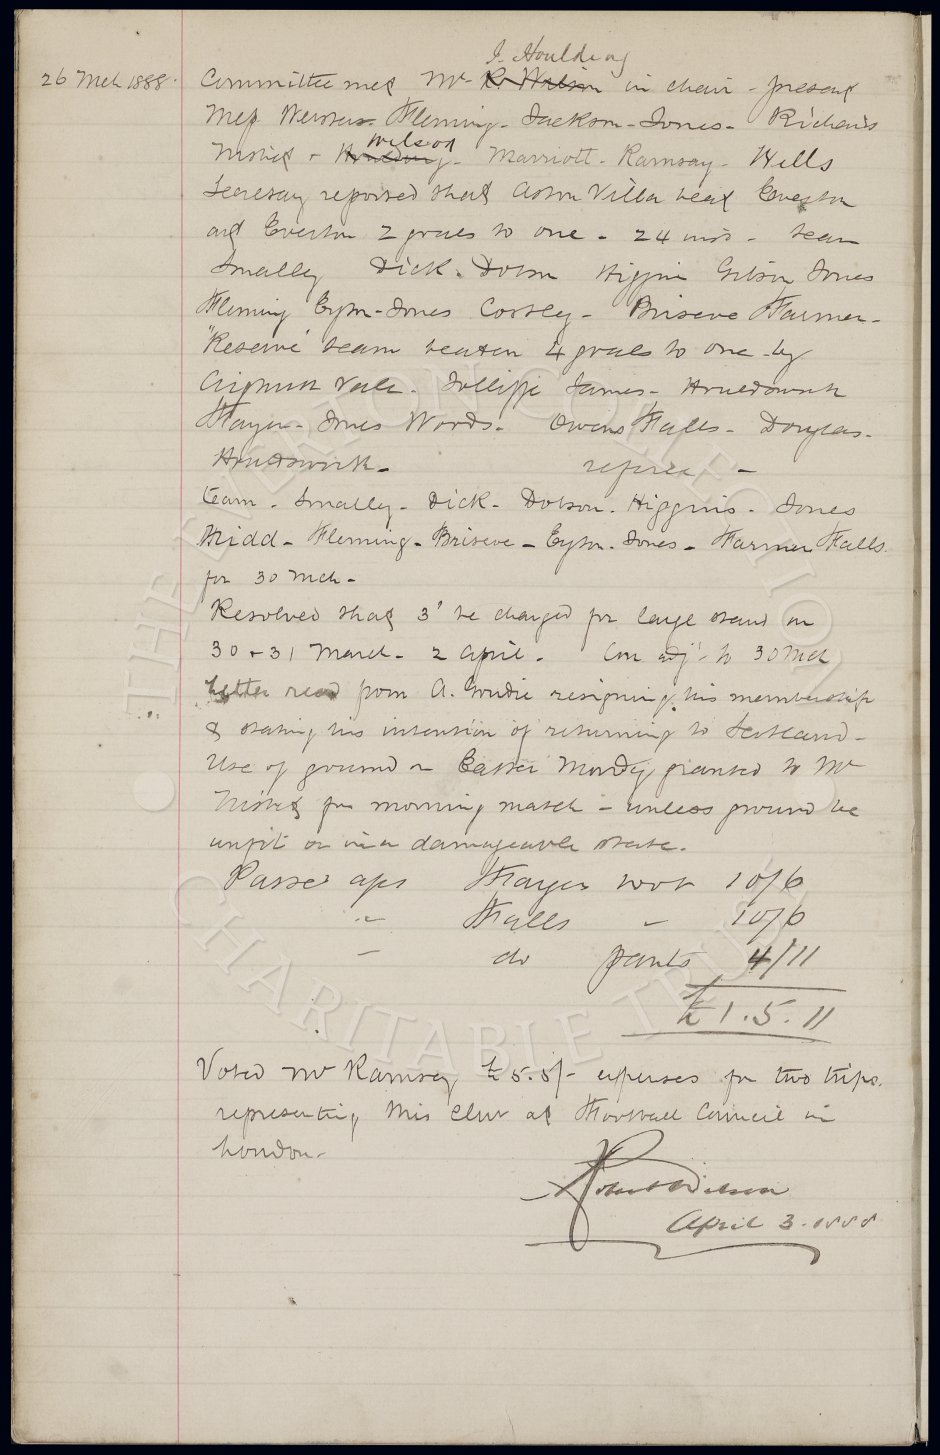 J. Houlding
26 Mch 1888. Committee met Mr R. Wilson in chair - present
Wilson
Fleming - Jackson - Jones - Richards
Nisbet + Houlding - Marriott - Ramsay - Wells
Secretary reported that Aston Villa beat Everton
at Everton 2 goals to one - 24 inst - team
Smalley Dick - Dobson Higgins Gibson Jones
Fleming Eyton-Jones Costley - Briscoe Farmer -
"Reserve" team beaten 4 goals to one by
Vale - Jolliffe James -
Jones Woods - Owens Falls - Douglas -
referee -
team - Smalley - Dick - Dobson - Higgins - Jones
Fleming - Briscoe - Eyton-Jones - Farmer Falls
for 30 Mch -
Resolved that 3d be charged for large stand on
30 + 31 March - 2 April - Com adj'd to 30 Mch
Letter read from A. Goudie resigning his membership
& stating his intention of returning to Scotland -
Use of ground on Easter Monday granted to Mr
Nisbet for morning match - unless ground be
unfit or in a damageable state.
Passed a/cs Mayer boot 10/6
" Falls " 10/6
" do pants 4/11
£1.5.11
Voted Mr Ramsay £5.5/- expenses for two trips
representing this club at Football Council in
London -
Robert Wilson
April 3 - 1888
THE EVERTON COLLECTION
CHARITABLE TRUST